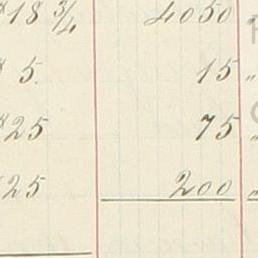 18 3/4 4050
5. 15 "
25 75 "
25 200 "